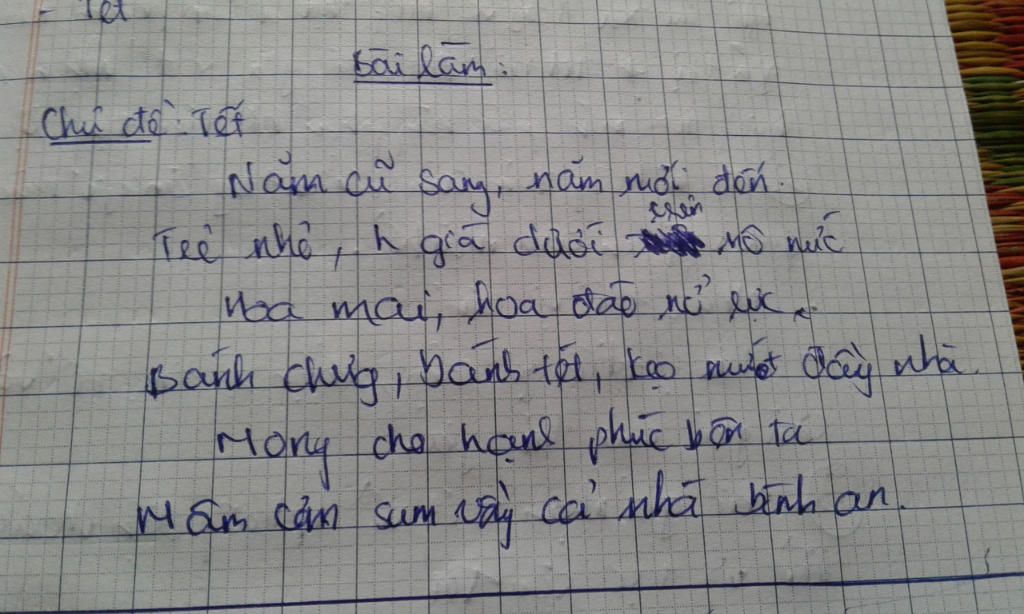 - Tết
Bài làm:
Chủ đề: Tết
Năm cũ sang, năm mới đến.
Trẻ nhỏ, già dưới trên nô nức
Hoa mai, hoa đào nở rực
Bánh chưng, bánh tét, kẹo mứt đầy nhà.
Mong cho hạnh phúc bên ta
Mâm cơm sum vầy cả nhà bình an.